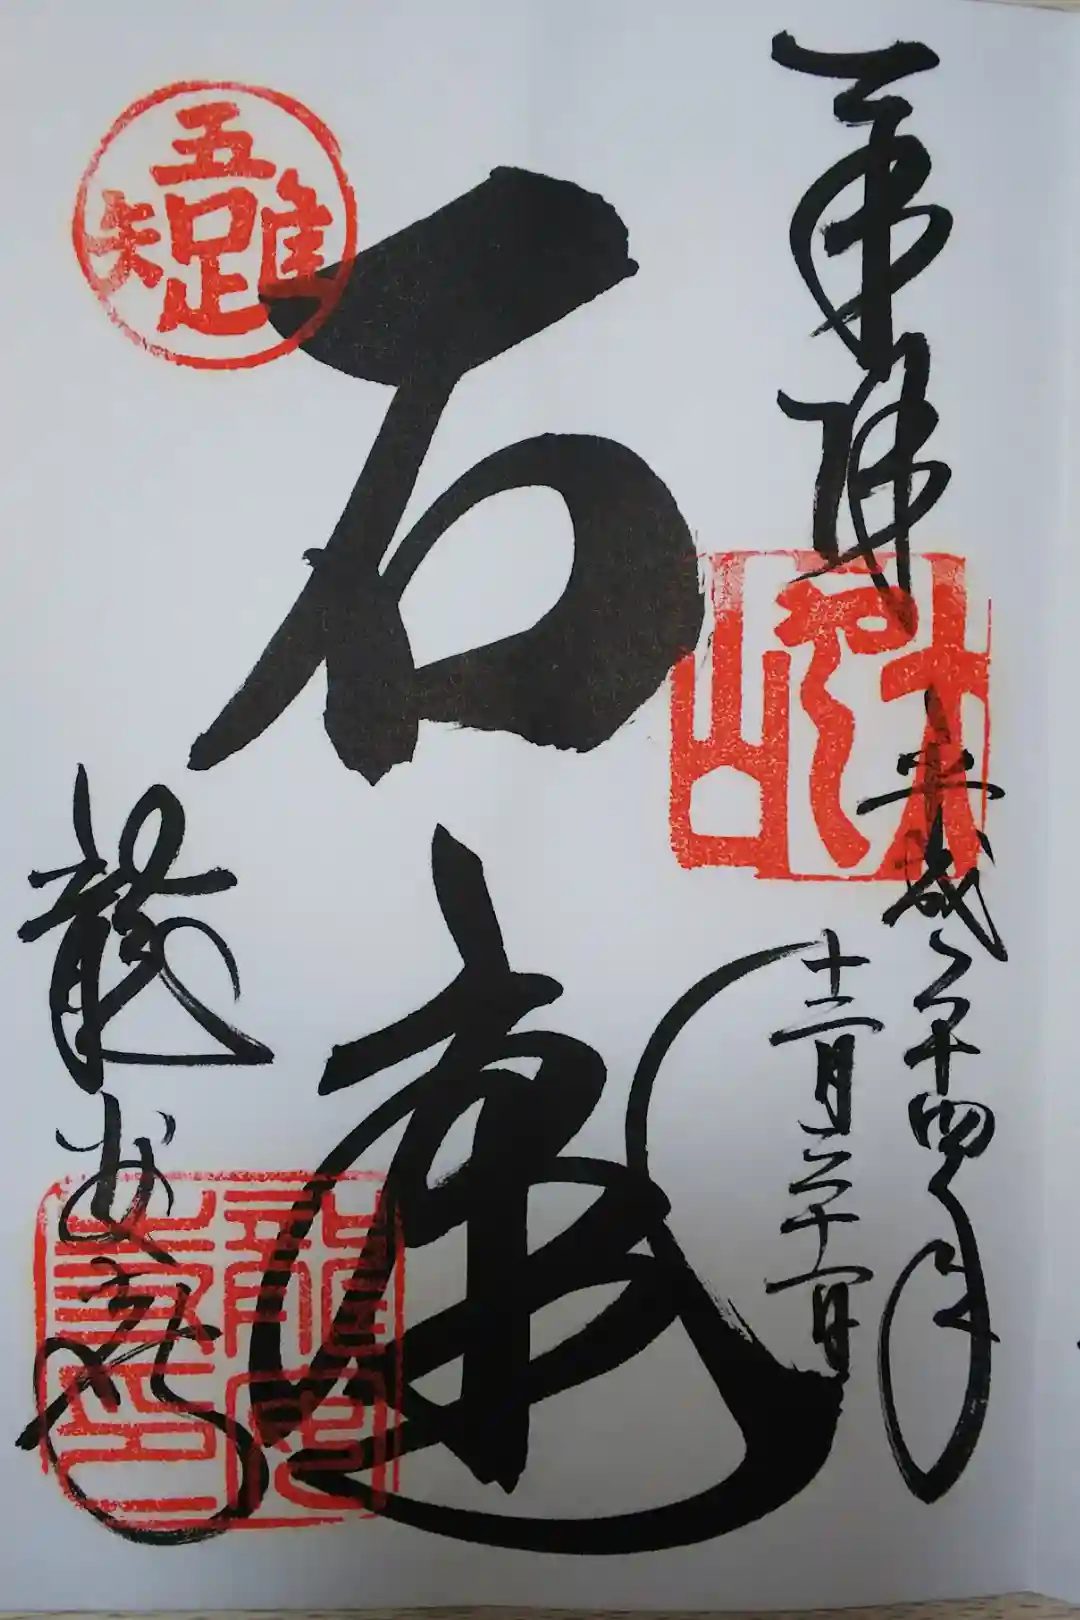 奉拝
大雲山
平成二十四年
十二月二十一日
石庭
吾唯足知
龍安寺
龍安寺印